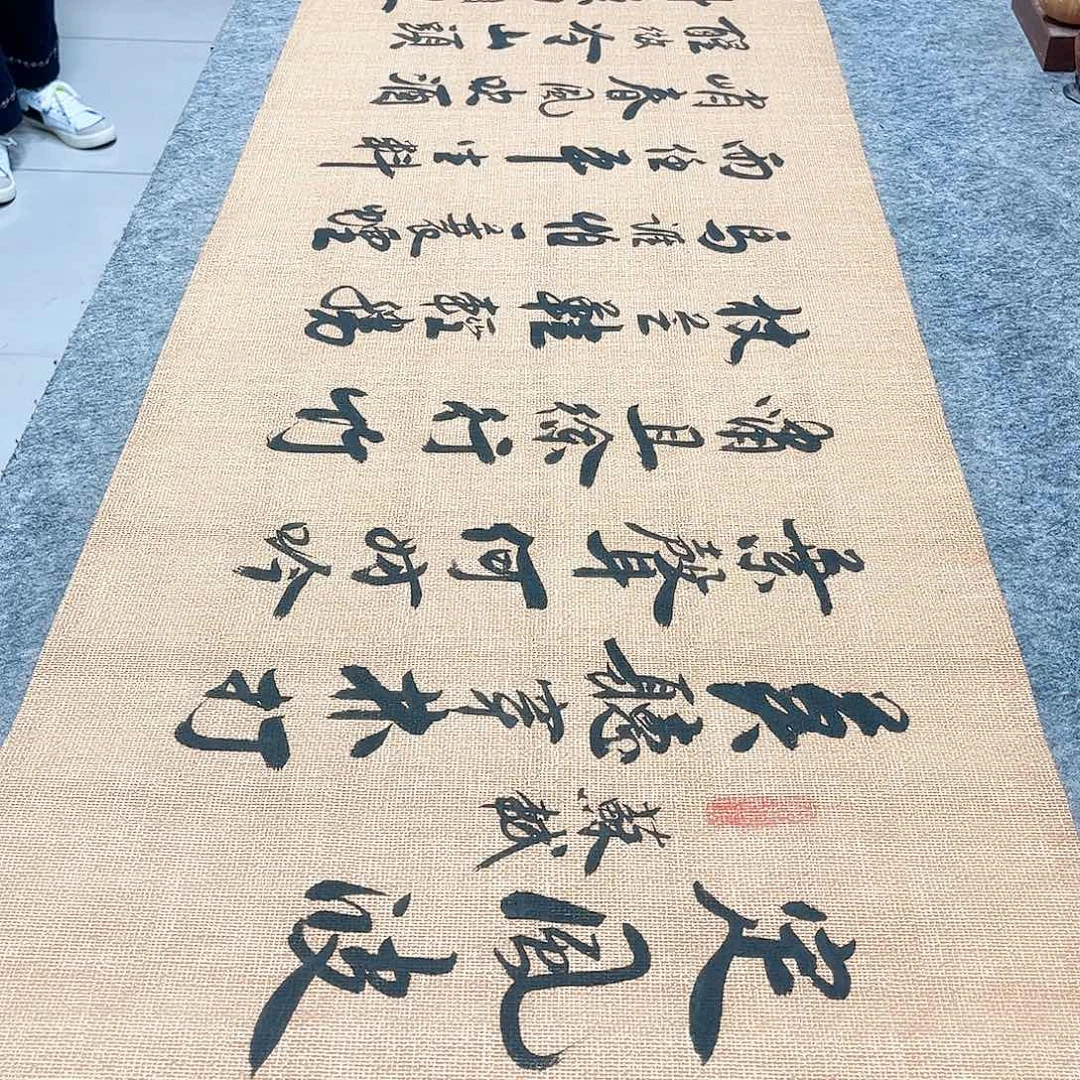 定風波
蘇軾
莫聽穿林打
葉聲何妨吟
嘯且徐行竹
杖芒鞋輕勝
馬誰怕一蓑煙
雨任平生料
峭春風吹酒
醒微冷山頭